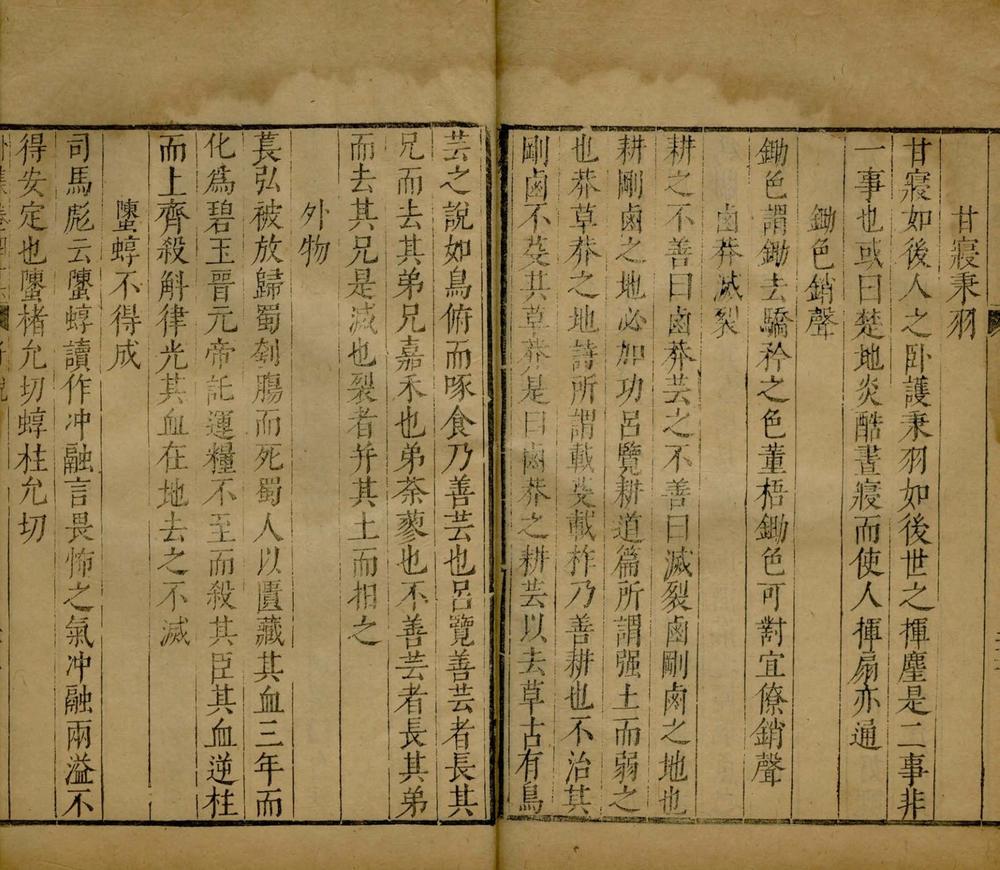 甘寢秉羽
甘寢如後人之卧護秉羽如後世之揮麈是二事非
一事也或曰楚地炎酷晝寢而使人揮扇亦通
鋤色銷聲
鋤色謂鋤去驕矜之色董梧鋤色可對宜僚銷聲
鹵莽滅裂
耕之不善曰鹵莽芸之不善曰滅裂鹵剛鹵之地也
耕剛鹵之地必加功呂覽耕道篇所謂强土而弱之
也莽草莽之地詩所謂載芟載柞乃善耕也不治其
剛鹵不芟其草莽是曰鹵莽之耕芸以去草古有鳥
芸之說如鳥俯而啄食乃善芸也呂覽善芸者長其
兄而去其弟兄嘉禾也弟荼蓼也不善芸者長其弟
而去其兄是滅也裂者并其土而相之
外物
萇弘被放歸蜀刳膓而死蜀人以匱藏其血三年而
化爲碧玉晋元帝託運糧不至而殺其臣其血逆柱
而上齊殺斛律光其血在地去之不滅
䗞蜳不得成
司馬彪云䗞蜳讀作冲融言畏怖之氣冲融兩溢不
得安定也䗞楮允切蜳柱允切